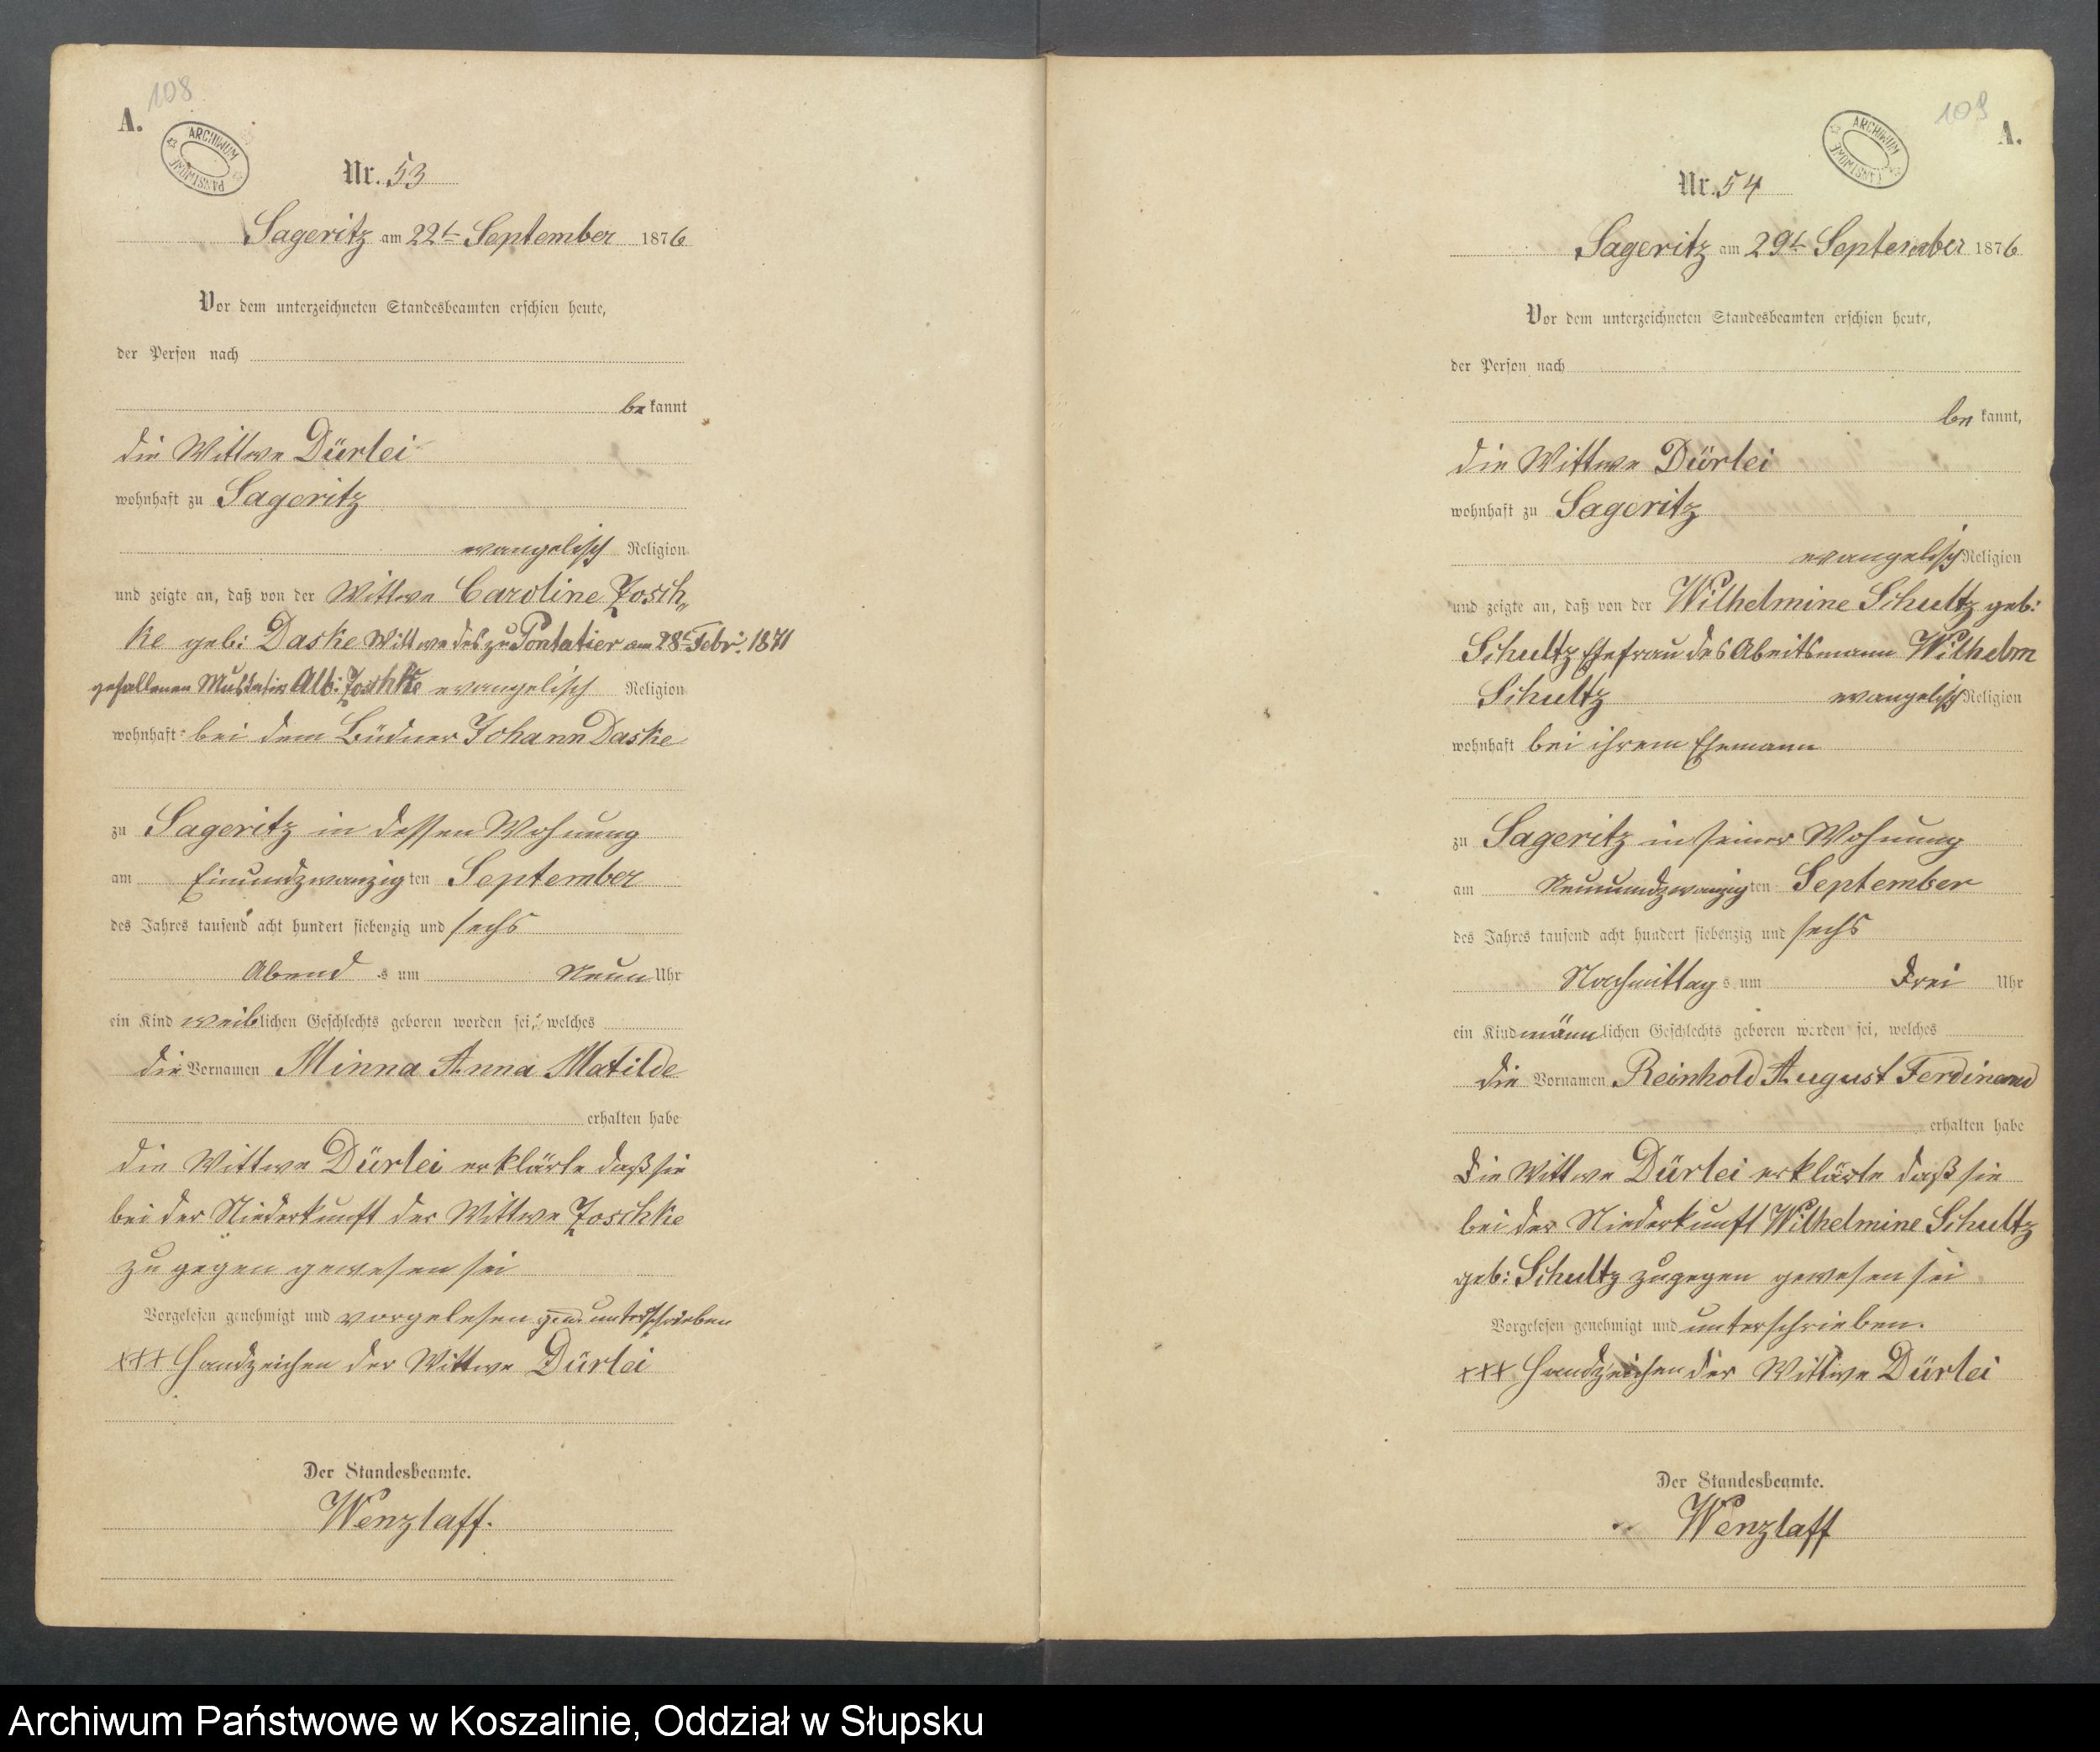 108
A.
ARCHIWUM PAŃSTWOWE
Nr. 53
Sageritz am 22t September 1876
Vor dem unterzeichneten Standesbeamten erschien heute,
der Person nach
bekannt
die Wittwe Dürlei
wohnhaft zu Sageritz
evangelisch Religion
und zeigte an, daß von der Wittwe Caroline Josch„
ke geb: Daske Wittwe des zu Pontalier am 28t Febr: 1871
gefallenen Musketier Alb: Joschke evangelisch Religion
wohnhaft bei dem Büdner Johann Daske
zu Sageritz in dessen Wohnung
am Einundzwanzigten September
des Jahres tausend acht hundert siebenzig und sechs
Abends um Neun Uhr
ein Kind weiblichen Geschlechts geboren worden sei, welches
die Vornamen Minna Anna Matilde
erhalten habe
die Wittwe Dürlei erklärte daß sie
bei der Niederkunft der Wittwe Joschke
zu gegen gewesen sei
Vorgelesen genehmigt und vorgelesen unterschrieben
+++ Handzeichen der Wittwe Dürlei
Der Standesbeamte.
Wenzlaff.
109
A.
ARCHIWUM PAŃSTWOWE
Nr. 54
Sageritz am 29t September 1876
Vor dem unterzeichneten Standesbeamten erschien heute,
der Person nach
bekannt,
die Wittwe Dürlei
wohnhaft zu Sageritz
evangelisch Religion
und zeigte an, daß von der Wilhelmine Schultz geb:
Schultz Ehefrau des Abeitsmann Wilhelm
Schultz evangelisch Religion
wohnhaft bei ihrem Ehemann
zu Sageritz in seiner Wohnung
am Neunundzwanzigten September
des Jahres tausend acht hundert siebenzig und sechs
Nachmittags um Drei Uhr
ein Kind männlichen Geschlechts geboren worden sei, welches
die Vornamen Reinhold August Ferdinand
erhalten habe
Die Wittwe Dürlei erklärte daß sie
bei der Niederkunft Wilhelmine Schultz
geb: Schultz zugegen gewesen sei
Vorgelesen genehmigt und unterschrieben.
+++ Handzeichen der Wittwe Dürlei
Der Standesbeamte.
Wenzlaff
Archiwum Państwowe w Koszalinie, Oddział w Słupsku